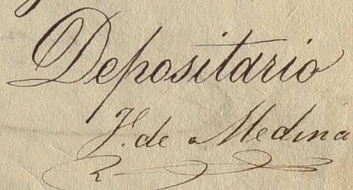 Depositario
J. de Medina